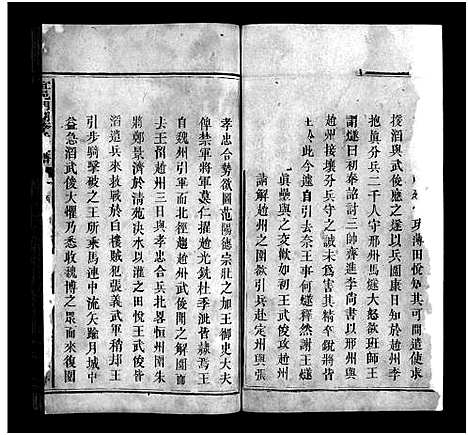 巧薄田悅知其可間遣使求
援滔與武俊應之遂以兵圍康日知於趙州李
抱眞分兵二千人守邢州馬燧大怒欲班師王
謂燧曰初奉詔討三帥齊進李尚書以邢州與
趙州接壤分兵守之誠未爲害其精卒銳將皆
在此今遽自引去奈王事何燧釋然謝王燧
眞壘與之交歡如初王武俊攻趙州
請解趙州之圍欲引兵赴定州與張
孝忠合勢欲圖范陽德宗壯之加王御史大夫
俾禁軍將軍莫仁擢趙光銑杜季泚皆隸焉王
自魏州引軍而北徑趨趙州武俊聞之解圍而
去王留趙州三日與孝忠合兵北畧恒州圍朱
將鄭景濟於淸苑決水以灌之田悅王武俊皆
滔遣兵來救戰於白樓賊犯張義武軍稍却王
引步騎擊破之王所乘馬連中流矢踰月城中
益急滔武俊大懼乃悉收魏博之眾而來復圍